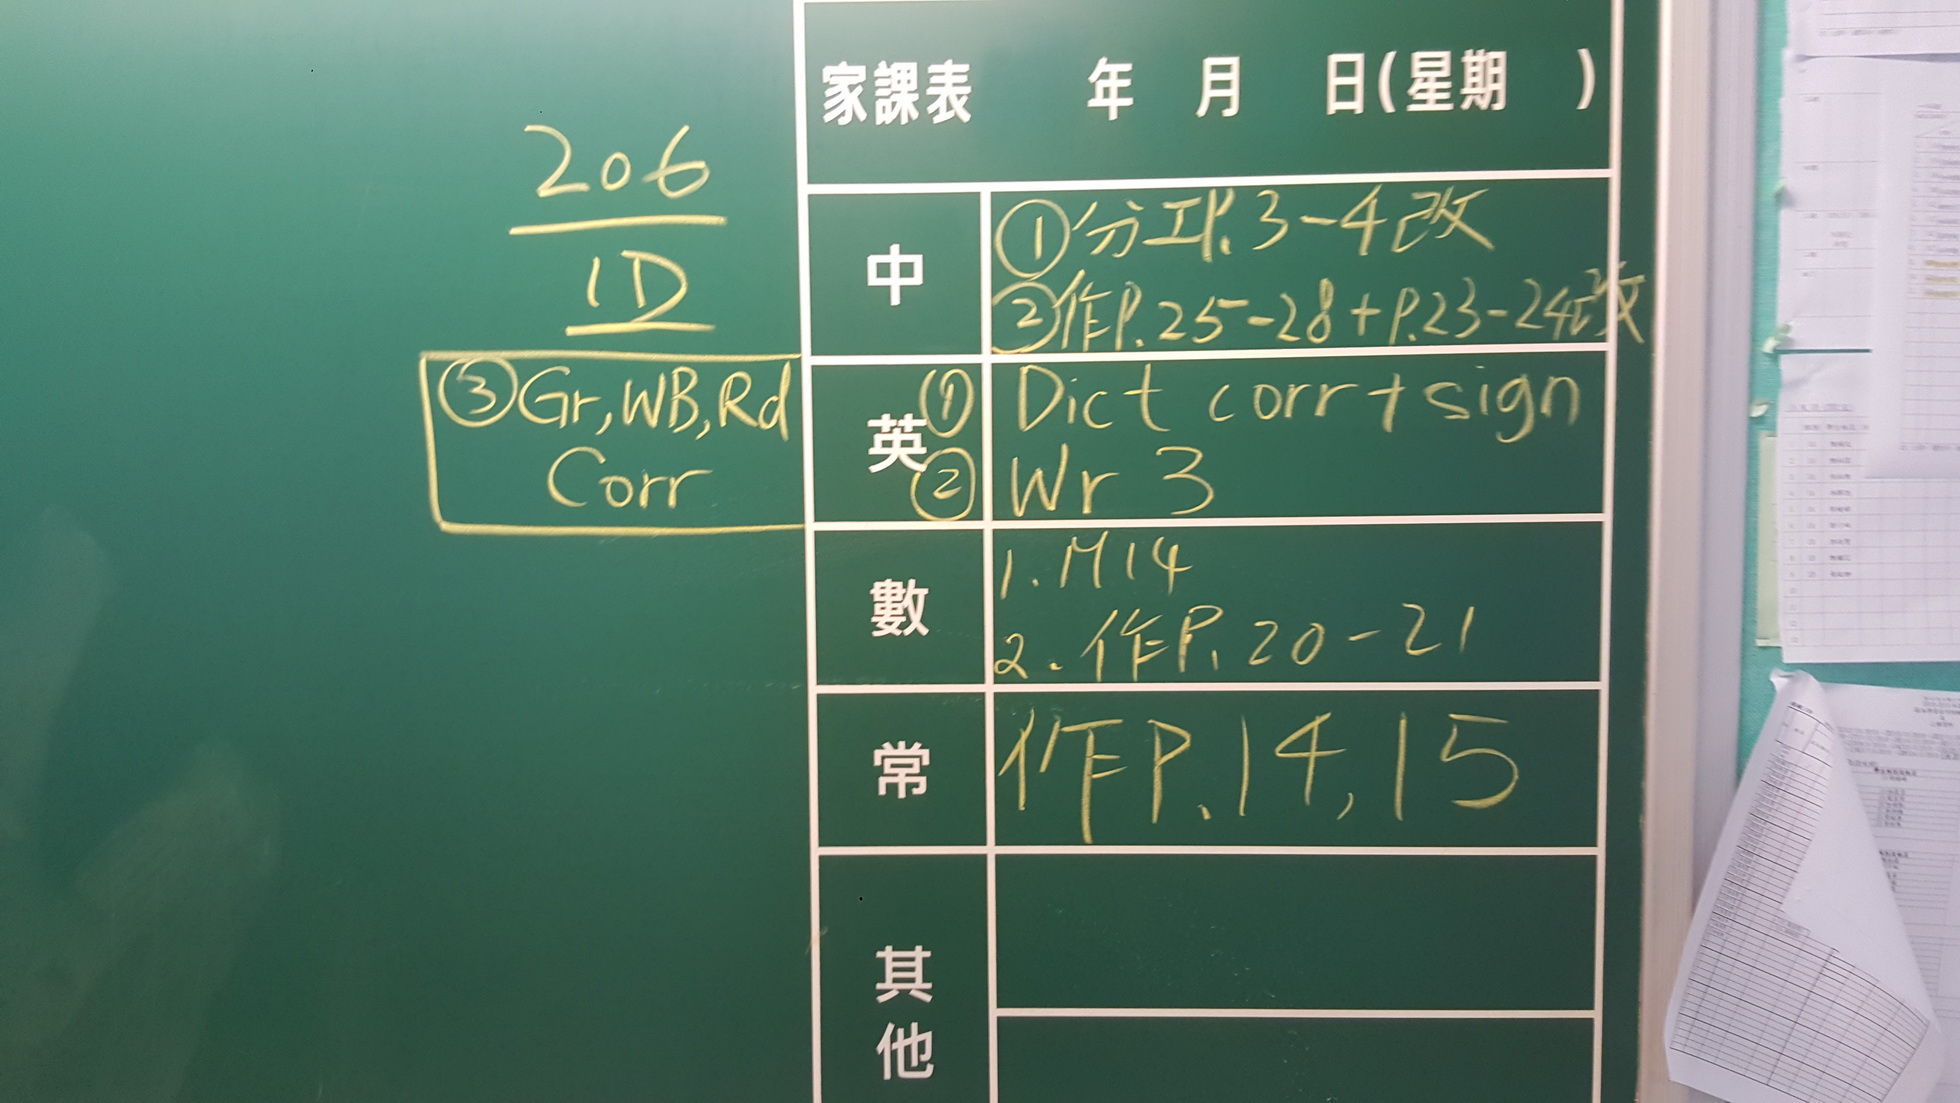 家課表 年 月 日(星期 )
206
1D
中
①分工P.3-4改
②作P.25-28+P.23-24改
英
① Dict corr+sign
② Wr 3
③Gr,WB,Rd
Corr
數
1.M14
2.作P.20-21
常
作P.14,15
其
他